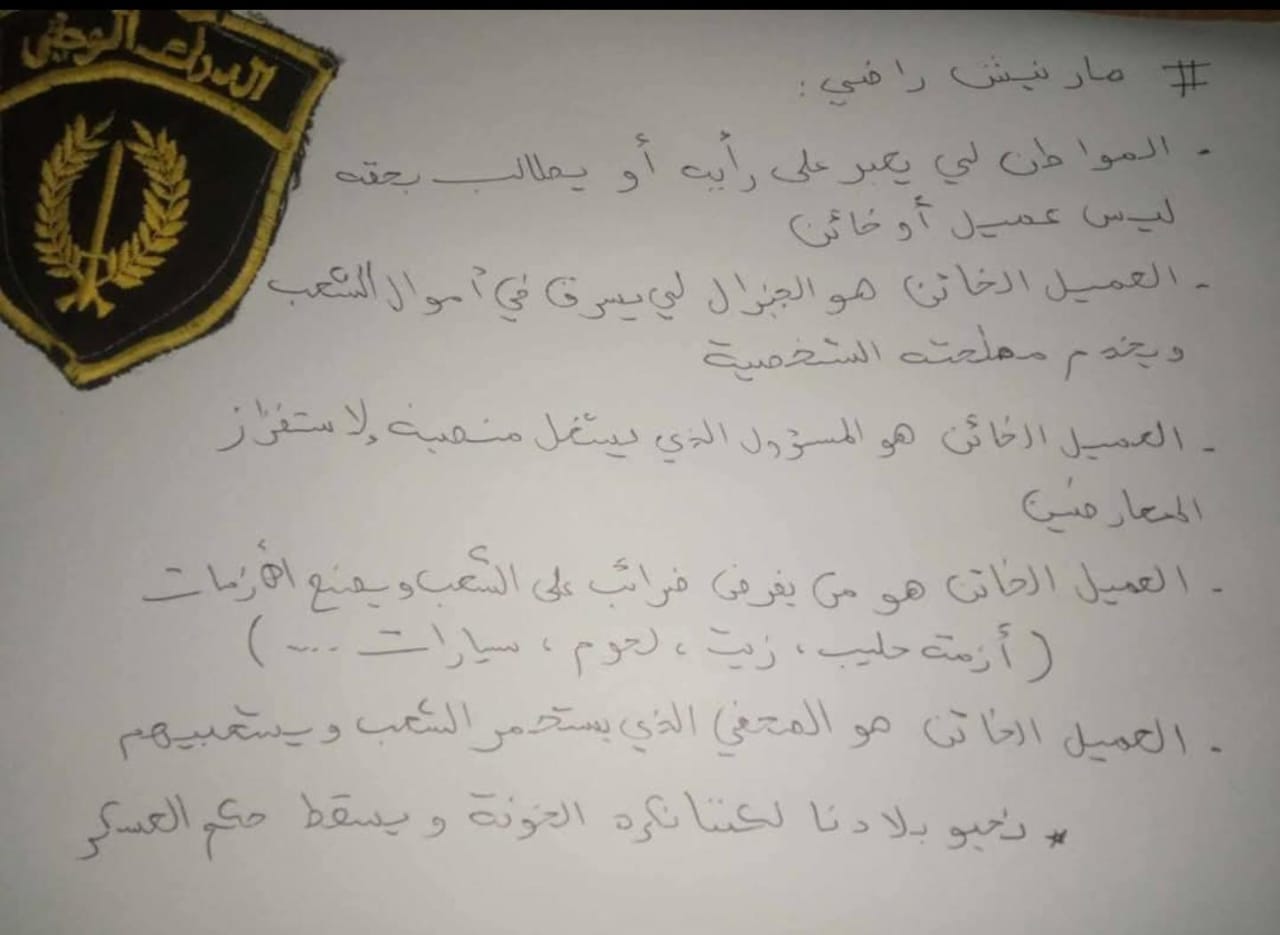 الدرك الوطني
# مارنيش راضي :
- المواطن لي يعبر على رأيه أو يطالب بحقه
ليس عميل أو خائن
- العميل الخائن هو الجنرال لي يسرق في أموال الشعب
ويخدم مصلحته الشخصية
- العميل الخائن هو المسؤول الذي يستغل منصبه لاستفزاز
المعارضين
- العميل الخائن هو من يفرض ضرائب على الشعب ويصنع الأزمات
( أزمة حليب ، زيت ، لحوم ، سيارات .... )
- العميل الخائن هو الصحفي الذي يستحمر الشعب ويستغبيهم
* نحبو بلادنا لكننا نكره الخونة و يسقط حكم العسكر